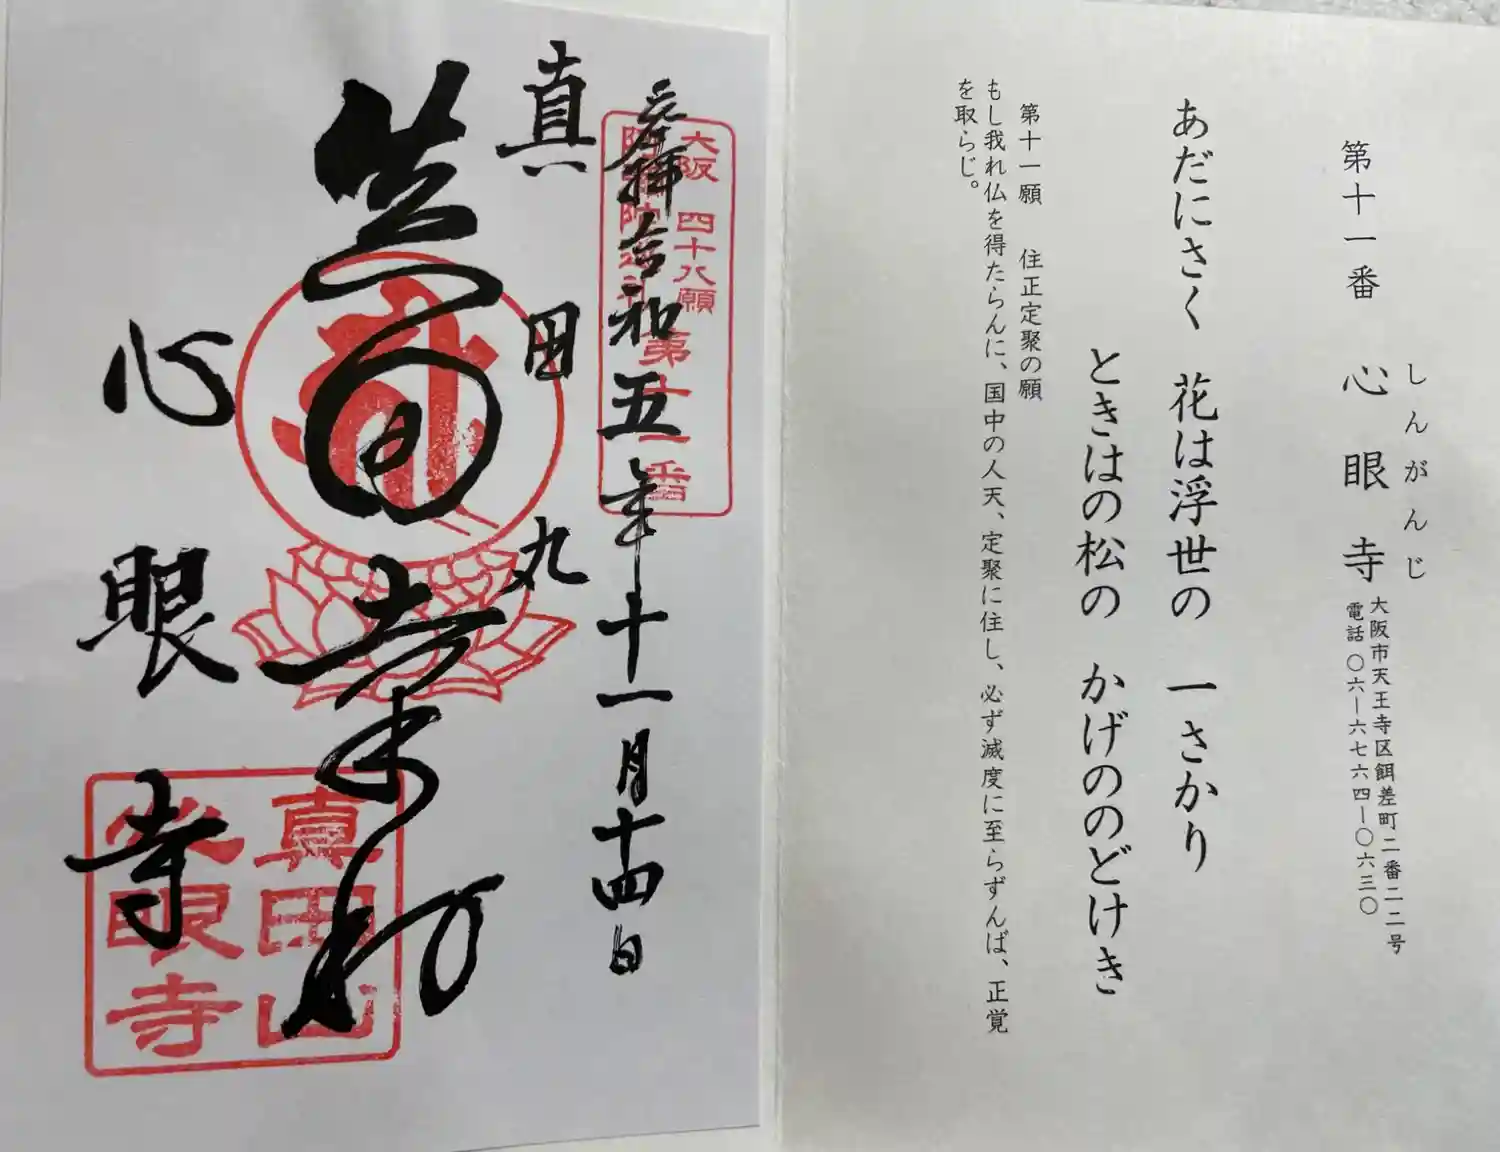 第十一番
しんがんじ
心眼寺
大阪市天王寺区餌差町二番二二号
電話〇六ー六七六四ー〇六三〇
あだにさく 花は浮世の 一さかり
ときはの松の かげののどけき
第十一願 住正定聚の願
もし我れ仏を得たらんに、国中の人天、定聚に住し、必ず滅度に至らずんば、正覚
を取らじ。
大阪 四十八願
第十一番
奉拝令和五年十一月十四日
真田丸
心眼寺
真田山
心眼寺